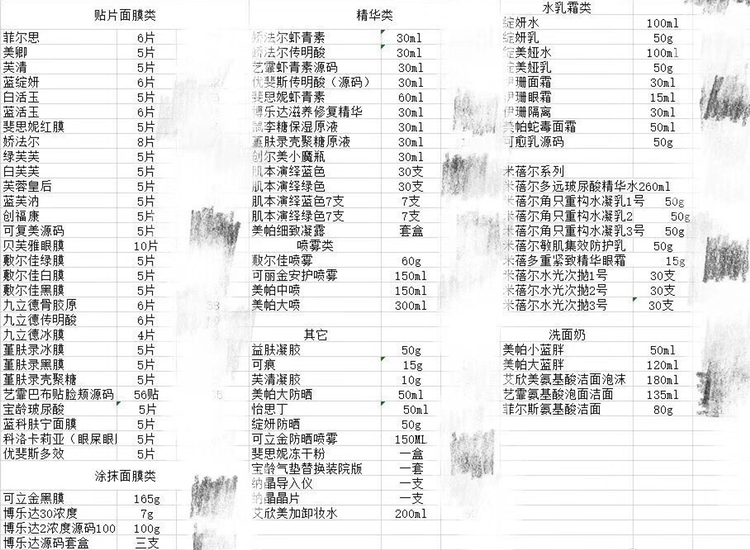 贴片面膜类
菲尔思 6片
美卿 5片
芙清 5片
蓝绽妍 6片
白活玉 5片
蓝活玉 6片
斐思妮红膜 5片
娇法尔 8片
绿芙芙 5片
白芙芙 5片
芙蓉皇后 5片
蓝芙汭 5片
创福康 5片
可复美源码 5片
贝芙雅眼膜 10片
敷尔佳绿膜 5片
敷尔佳白膜 5片
敷尔佳黑膜 5片
九立德骨胶原 6片
九立德传明酸 6片
九立德冰膜 4片
堇肤录冰膜 5片
堇肤录黑膜 5片
堇肤录壳聚糖 5片
艺霏巴布贴脸颊源码 56贴
宝龄玻尿酸 5片
蓝科肤宁面膜 5片
科洛卡莉亚（眼屎眼 5片
优斐斯多效 5片
涂抹面膜类
可立金黑膜 165g
博乐达30浓度 7g
博乐达2浓度源码100 100g
博乐达源码套盒 三支
精华类
娇法尔虾青素 30ml
娇法尔传明酸 30ml
艺霏虾青素源码 30ml
优斐斯传明酸（源码） 30ml
斐思妮虾青素 60ml
博乐达滋养修复精华 30ml
李糖保湿原液 30ml
堇肤录壳聚糖原液 30ml
创尔美小魔瓶 30ml
肌本演绎蓝色 30支
肌本演绎绿色 30支
肌本演绎蓝色7支 7支
肌本演绎绿色7支 7支
美帕细致凝露 套盒
喷雾类
敷尔佳喷雾 60g
可丽金安护喷雾 150ml
美帕中喷 150ml
美帕大喷 300ml
其它
益肤凝胶 50g
可痕 15g
芙清凝胶 10g
美帕大防晒 50ml
怡思丁 50ml
绽妍防晒 50g
可立金防晒喷雾 150ML
斐思妮冻干粉 一盒
宝龄气垫替换装院版 一套
纳晶导入仪 一支
纳晶晶片 一支
艾欣美加卸妆水 200ml
水乳霜类
绽妍水 100ml
绽妍乳 50g
绽美娅水 100ml
绽美娅乳 50g
伊珊面霜 30ml
伊珊眼霜 15ml
伊珊隔离 30ml
美帕蛇毒面霜 50ml
可愈乳源码 50g
米蓓尔系列
米蓓尔多远玻尿酸精华水260ml
米蓓尔角只重构水凝乳1号 50g
米蓓尔角只重构水凝乳2 50g
米蓓尔角只重构水凝乳3号 50g
米蓓尔敏肌集效防护乳 50g
米蓓多重紧致精华眼霜 15g
米蓓尔水光次抛1号 30支
米蓓尔水光次抛2号 30支
米蓓尔水光次抛3号 30支
洗面奶
美帕小蓝胖 50ml
美帕大蓝胖 120ml
艾欣美氨基酸洁面泡沫 180ml
艺霏氨基酸泡面洁面 135ml
菲尔斯氨基酸洁面 80g